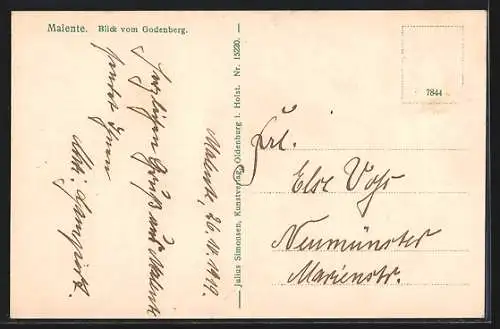 Malente. Blick vom Godenberg.
Malente, 26. IV. 1919.
Herzlichen Gruß aus Malente
sendet Ihnen
Julius Simonsen, Kunstverlag, Oldenburg i. Holst. Nr. 15220.
7844
Frl.
Else Voss
Neumünster
Marienstr.